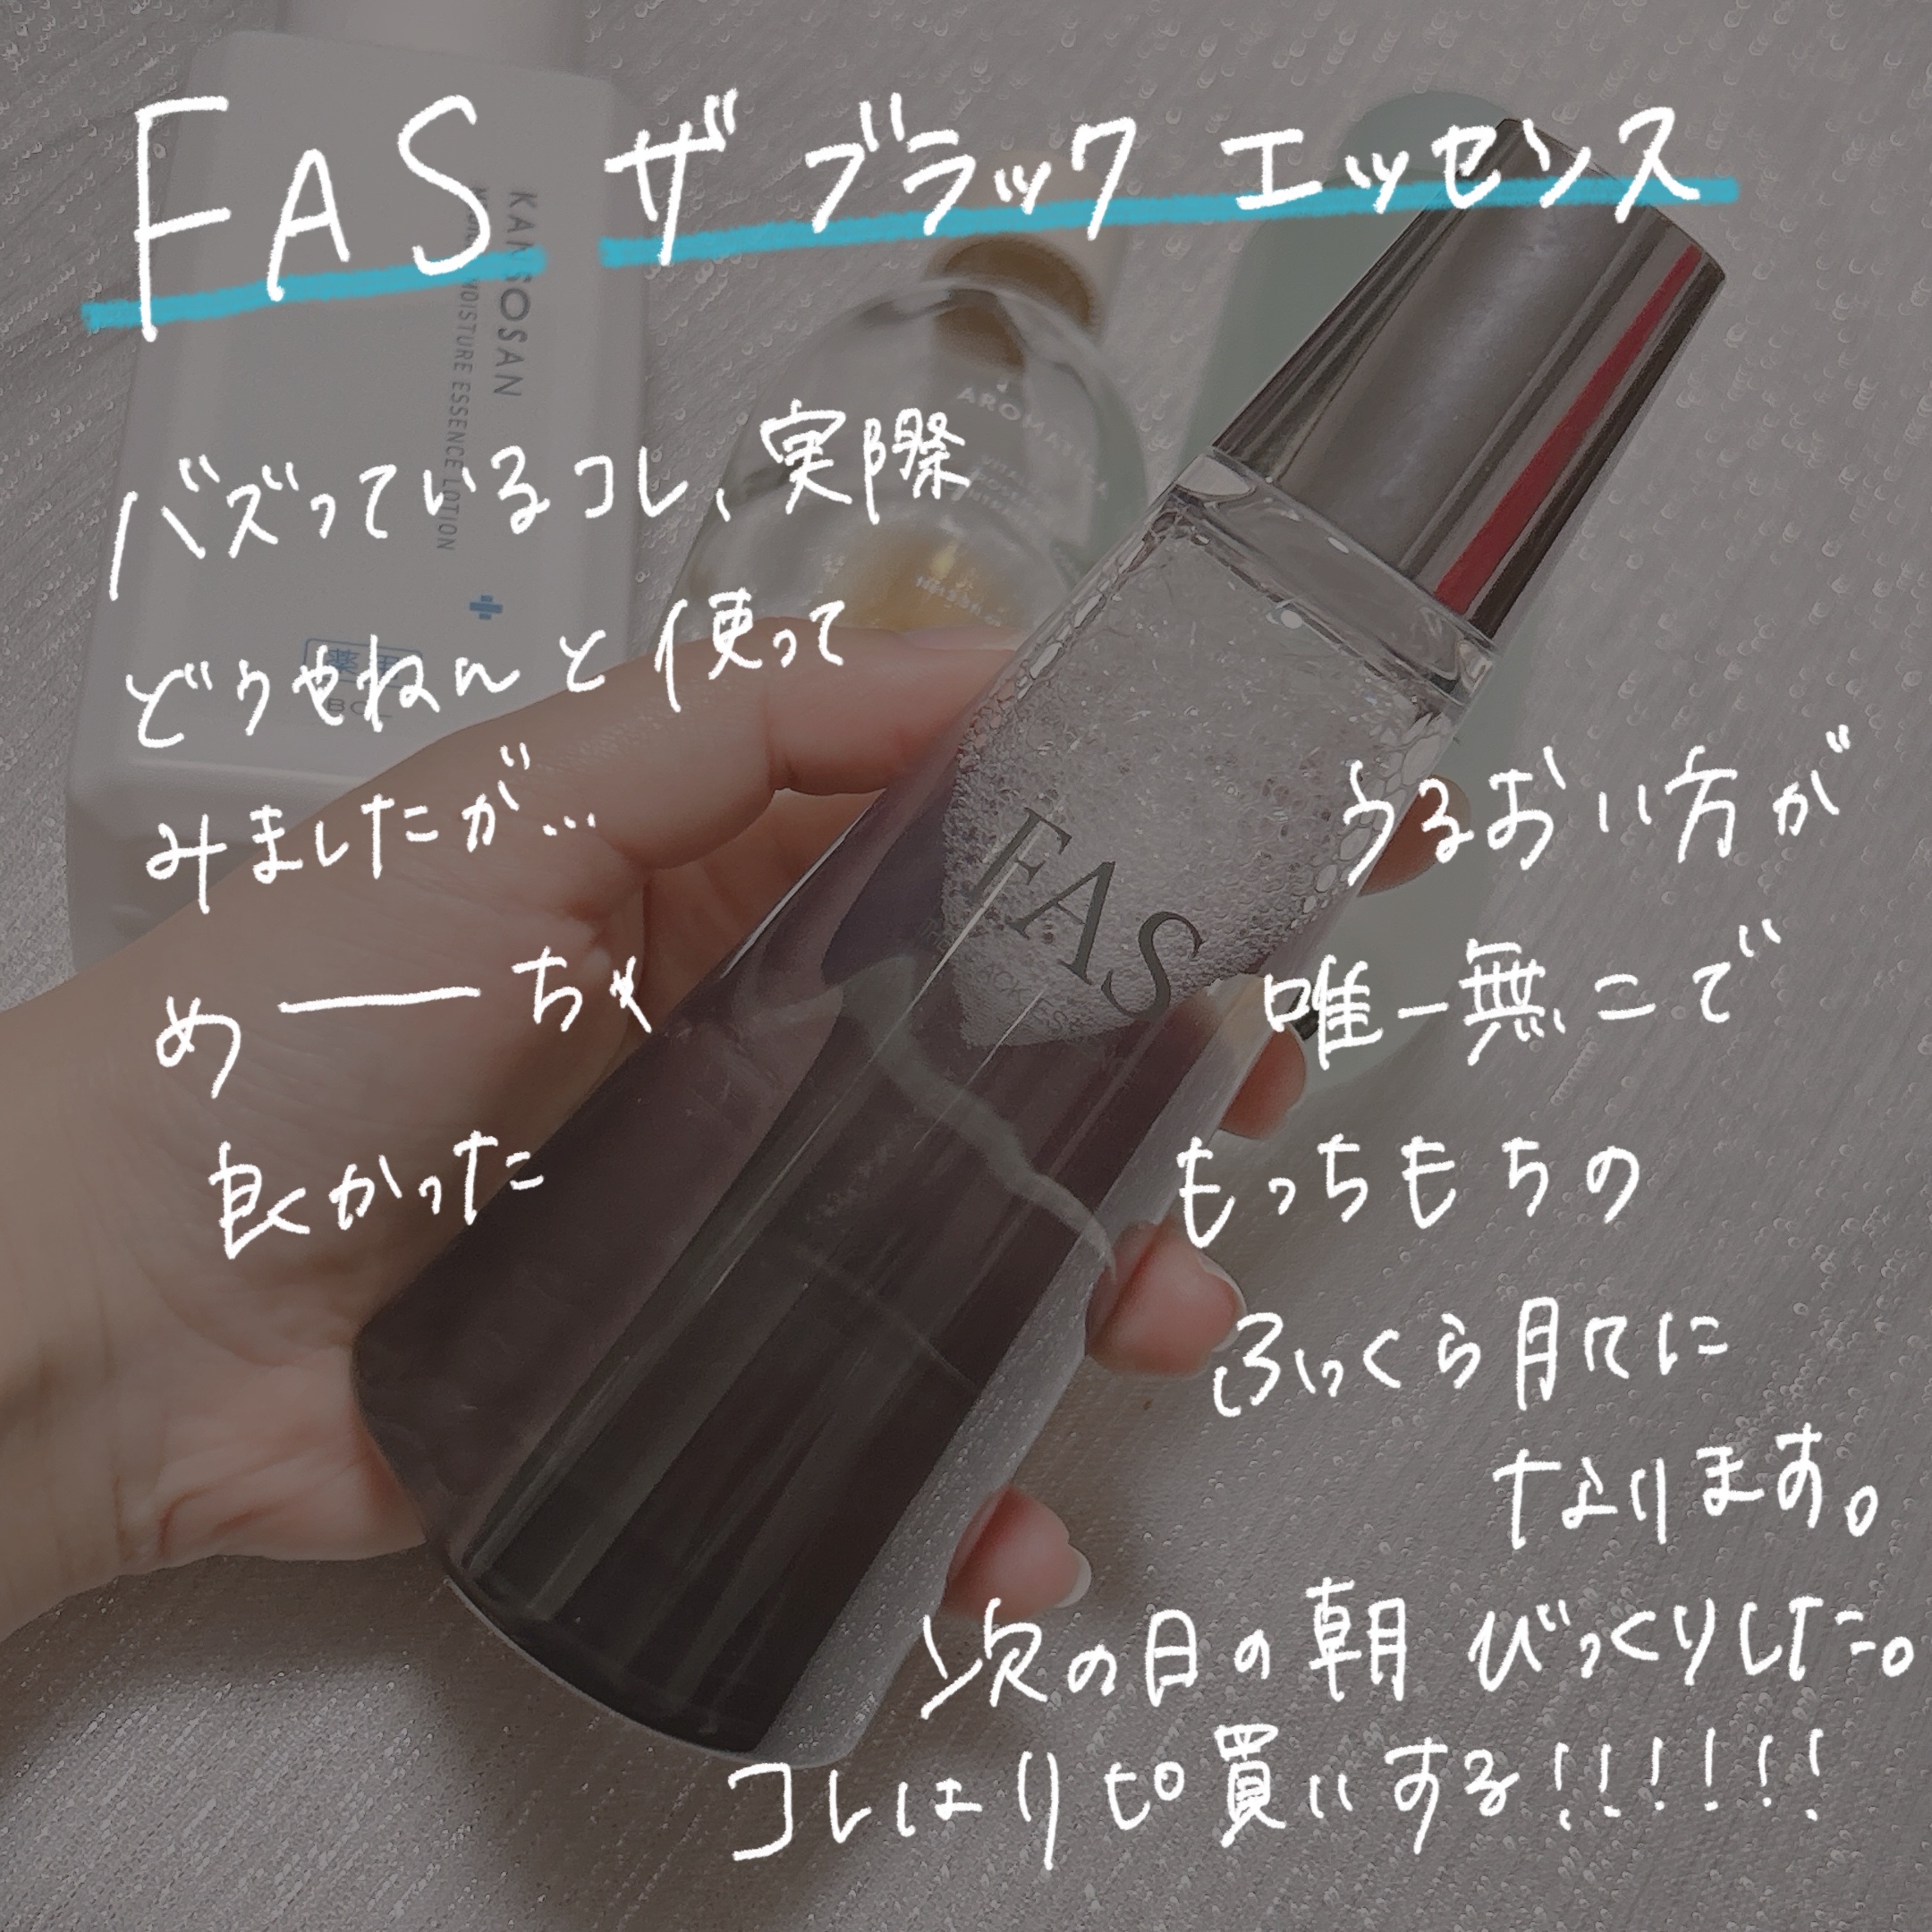 FAS ザ ブラック エッセンス
バズっているコレ、実際
どうやねんと使って
みましたが…
めーーちゃ
良かった
うるおい方が
唯一無二で
もっちもちの
ふっくら肌に
なります。
次の日の朝 びっくりした。
コレはリピ買いする!!!!!!
KANSOSAN
MOISTURE ESSENCE LOTION
AROMATICA
FAS